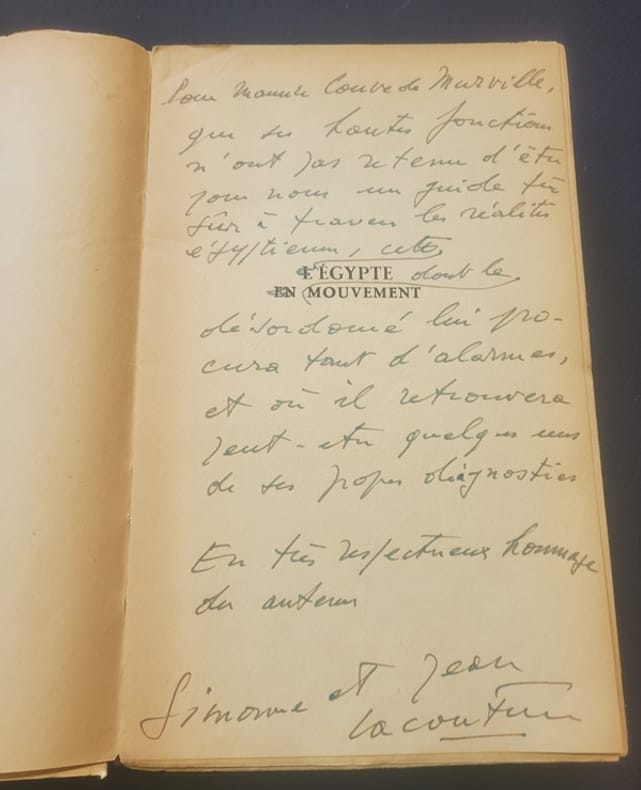 Pour Maurice Couve de Murville,
que ses hautes fonctions
n'ont pas retenu d'être
pour nous un guide très
sûr à travers les réalités
égyptiennes, cette
L'ÉGYPTE dont le
EN MOUVEMENT
désordonné lui pro-
cura tant d'alarmes,
et où il retrouvera
peut-être quelques uns
de ses propres diagnostics
En très respectueux hommage
des auteurs
Simonne et Jean
Lacouture